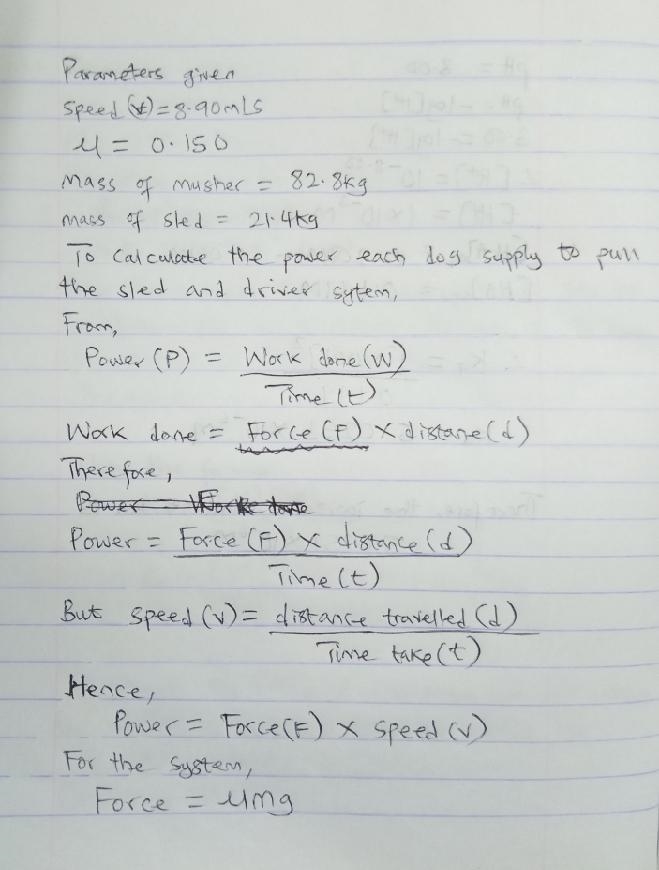 Parameters given
Speed (v)=8.90m/s
μ = 0.150
Mass of musher = 82.8kg
mass of sled = 21.4kg
To Calculate the power each dog supply to pull
the sled and driver sytem,
From,
Power (P) = Work done (W)
Time (t)
Work done = Force (F) X distane (d)
Therefore,
Power = Force (F) X distance (d)
Time (t)
But speed (v) = distance travelled (d)
Time take (t)
Hence,
Power = Force (F) X speed (v)
For the system,
Force = μmg